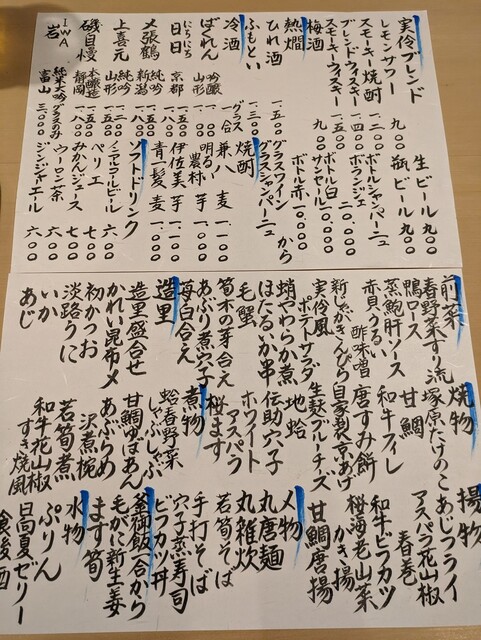 実伶ブレンド
レモンサワー 九〇〇
スモーキー焼酎 一.二〇〇
ブレンドウィスキー 一.五〇〇
スモーキーウィスキー 九〇〇
梅酒
熱燗
ひれ酒
ふもとい
冷酒
ばくれん 吟醸 山形
にちにち
日日 京都
〆張鶴 純吟 新潟
上喜元 純吟 山形
磯自慢 本醸造 静岡
IWA
岩 純米大吟 富山 グラスのみ 三.〇〇〇
生ビール 九〇〇
瓶ビール 九〇〇
ボトルシャンパーニュ
ボランジェ 二〇.〇〇〇
ボトル白
サンセール
ボトル赤
グラスワイン から
グラスシャンパーニュ
焼酎
兼八 麦
明るい農村 芋
伊佐美 芋
青一髪 麦
ソフトドリンク
ノンアルコールビール 六〇〇
ペリエ 七〇〇
みかんジュース 七〇〇
ウーロン茶 六〇〇
ジンジャエール 六〇〇
前菜
春野菜すり流し
鴨ロース
蒸鮑肝ソース
赤貝うるい 酢味噌
新じゃがきんぴら
実伶風 ポテトサラダ
蛸やわらか煮
ほたるいか串
毛蟹
筍木の芽合え
あぶり煮穴子
苺白合え
造里
造里盛合せ
かれい昆布〆
初かつお
淡路うに
いか
あじ
焼物
塚原たけのこ
甘鯛
和牛フィレ
唐すみ餅
自家製京あげ
生麩ブルーチーズ
地蛤
伝助穴子
ホワイトアスパラ
桜ます
煮物
蛤春野菜しゃぶしゃぶ
甘鯛ゆばあん
あぶらめ沢煮椀
若筍煮
和牛花山椒すき焼風
揚物
あじフライ
アスパラ花山椒
春巻
和牛ビフカツ
桜海老山菜かき揚
甘鯛唐揚
〆物
丸唐麺
丸雑炊
若筍そば
手打そば
穴子蒸寿司
ビフカツ丼
釜御飯 一合から
毛がに新生姜
ます 筍
水物
ぷりん
日向夏ゼリー
食後酒